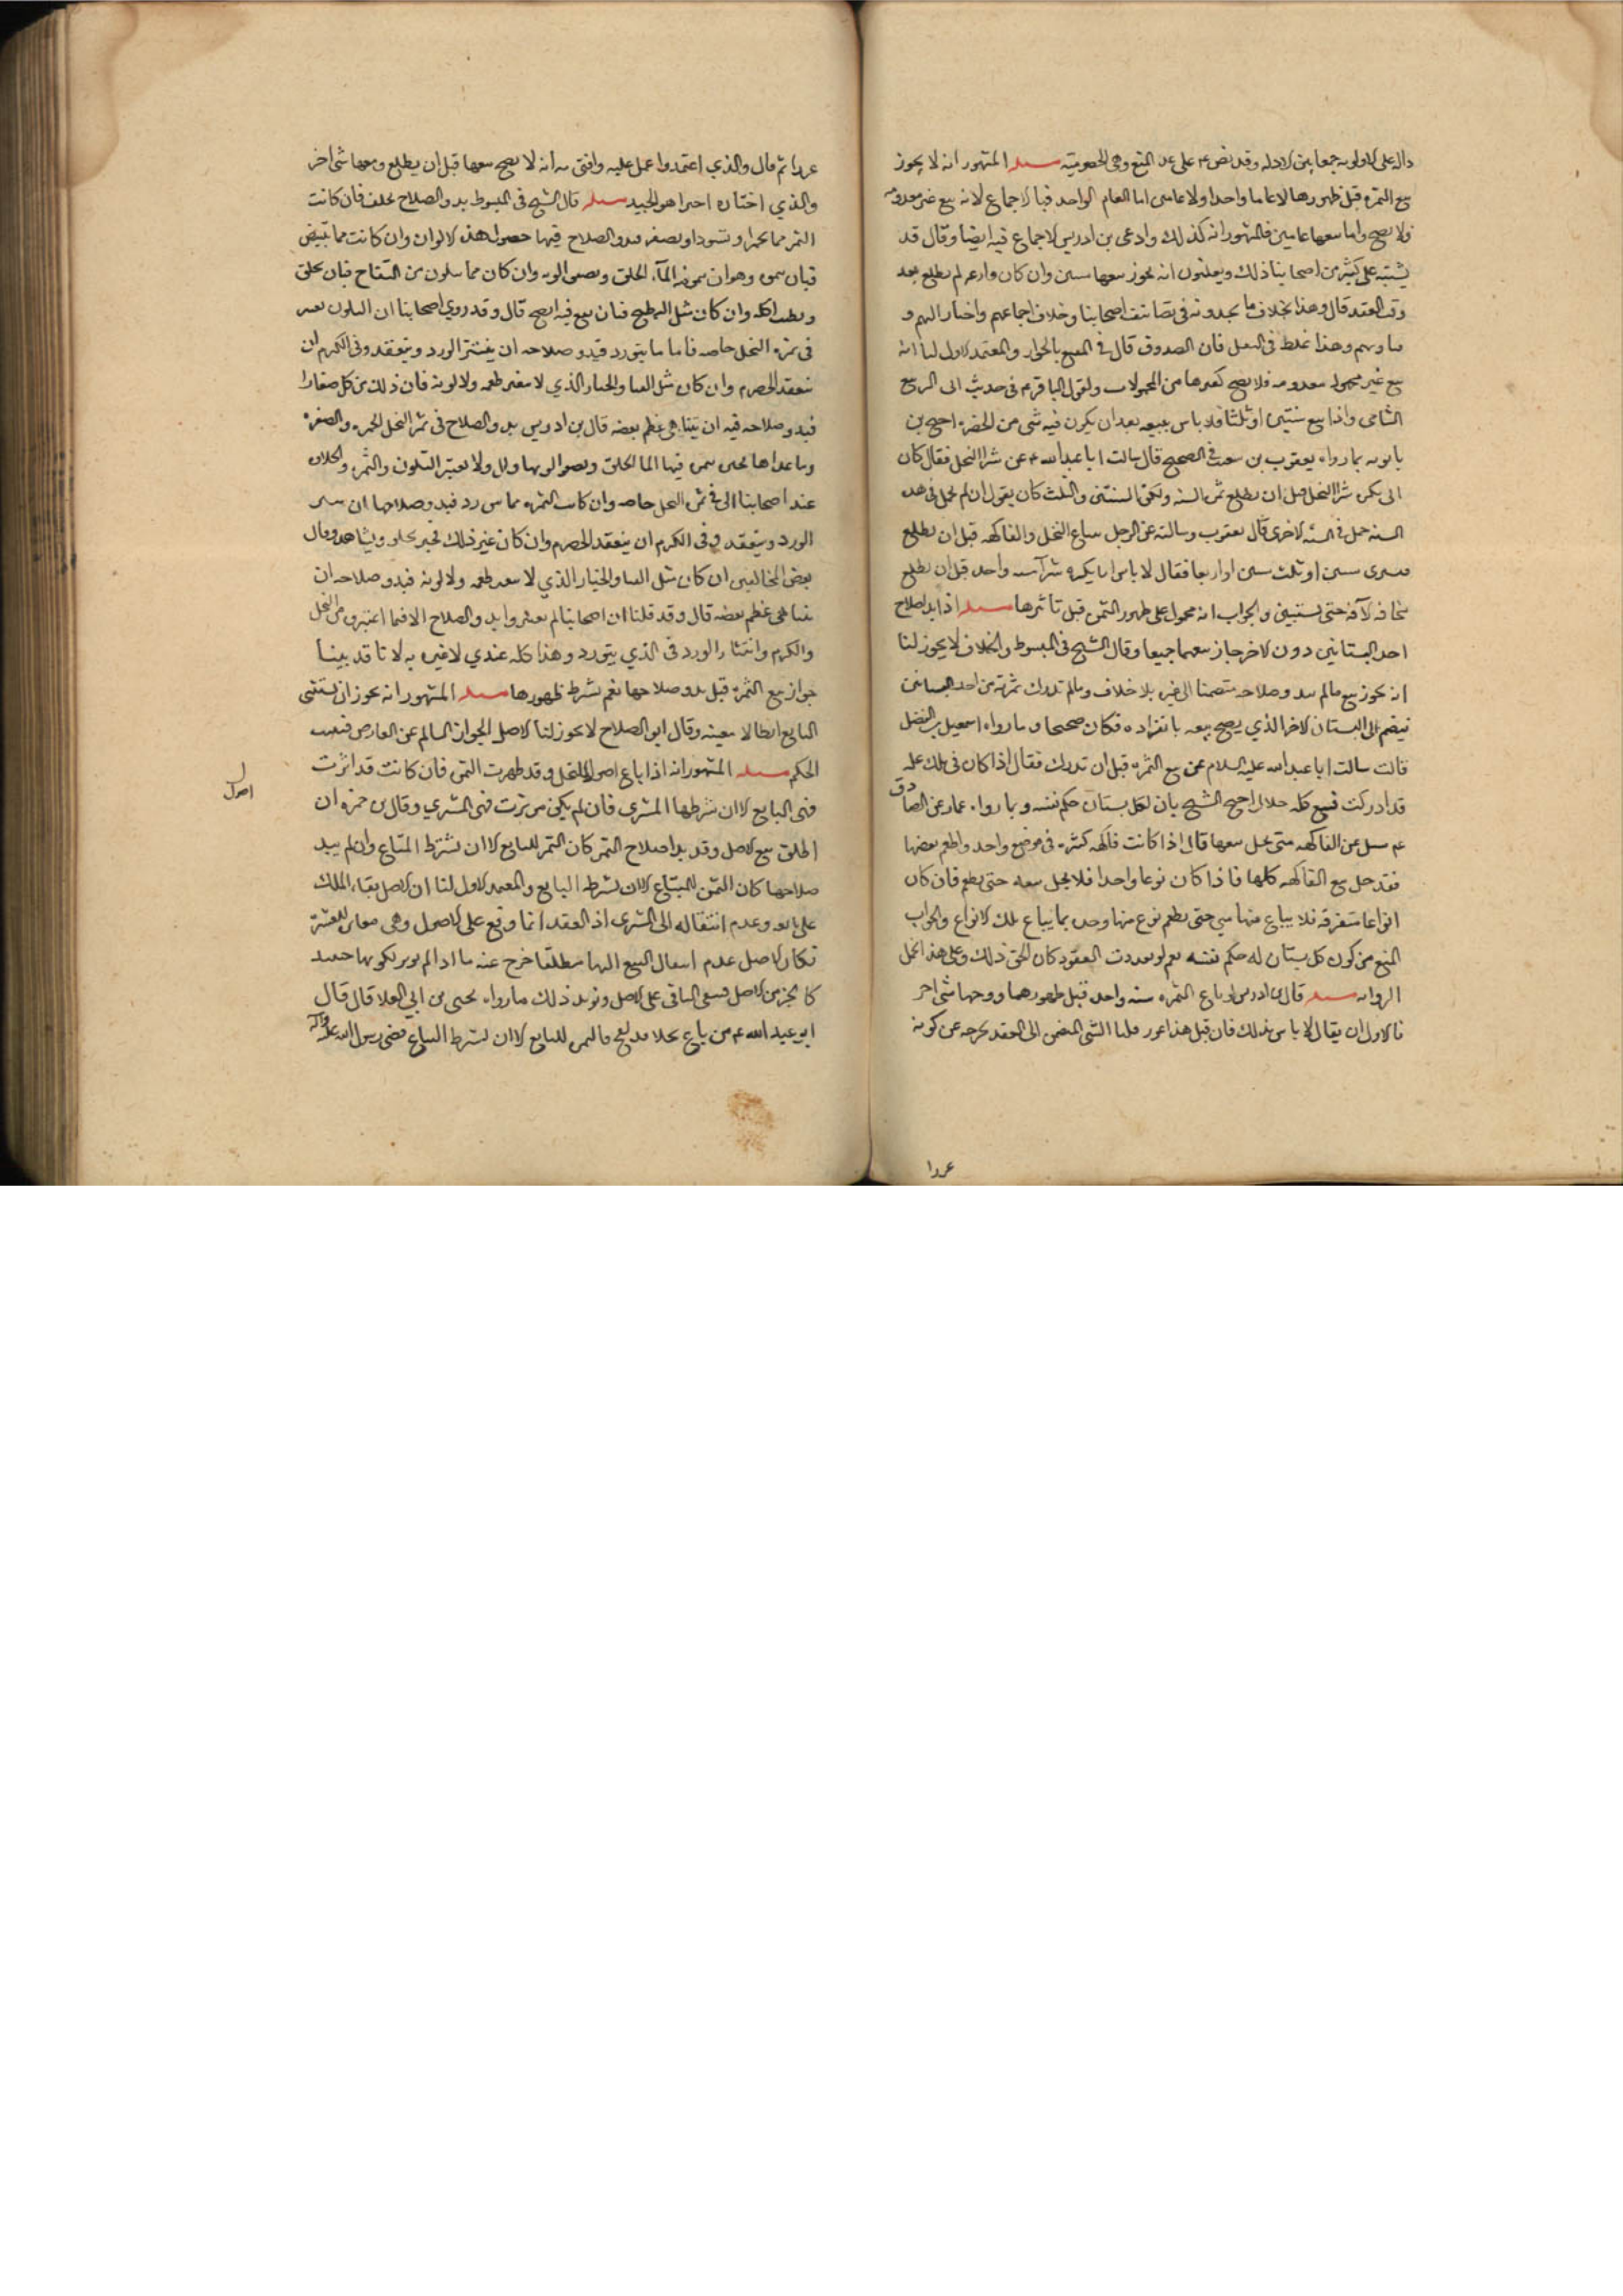 دالة على الاولوية جمعا بين الادلة وقد نص ع على عدم المنع وهي الخصومة مسئله المشهور انه لا يجوز
بيع الثمرة قبل ظهورها لا عاما واحدا ولا عامين اما العام الواحد فبالاجماع لانه بيع عين معدومة
ولا يصح واما بيعها عامين فالمشهور انه كذلك وادعى بن ادريس الاجماع فيه ايضا وقال قد
يشتبه على كثير من اصحابنا ذلك ويظنون انه يجوز بيعها سنتين وان كان فارغة لم يطلع بعد
وقت العقد قال وهذا بخلاف ما يجدونه في تصانيف اصحابنا وخلاف اجماعهم واخبار ايمتهم و
وهذا غلط في النقل فان الصدوق قال في المقنع بالجواز والمعتمد الاول لنا انه
بيع عين مجهولة معدومة فلا يصح كغيرها من المجهولات ولقول الباقر ع في حديث ابي الربيع
الشامي واذا بيع سنتين او ثلثا فلا باس ببيعه بعد ان يكون فيه شي من الخضرة احتج بن
بابويه بما رواه يعقوب بن شعيب في الصحيح قال سالت ابا عبد الله ع عن شرا النخل فقال كان
ابي يكره شرا النخل قبل ان يطلع ثمرة السنة ولكن السنتين والثلث كان يقول ان لم يحمل في هذه
السنة حمل في السنة الاخرى قال يعقوب وسالته عن الرجل يبتاع النخل والفاكهة قبل ان يطلع
فيشتري سنتين او ثلث سنين او اربعا فقال لا باس انما يكره شرآ سنة واحدة قبل ان يطلع
مخافة الآفة حتى يستبين والجواب انه محمول على ظهور الثمرة قبل تابيرها مسئله اذا بدا صلاح
احد البستانين دون الاخر جاز بيعهما جميعا وقال الشيخ في المبسوط والخلاف لا يجوز لنا
انه يجوز بيع ما لم يبد صلاحه منضما الى غيره بلا خلاف وما لم تدرك ثمرته من احد البساتين
ينضم الى البستان الاخر الذي يصح بيعه بانفراده فكان صحيحا وما رواه اسمعيل بن الفضل
قالت سالت ابا عبد الله عليه السلام عن بيع الثمرة قبل ان تدرك فقال اذا كان في تلك غلة
قد ادركت فبيع كله حلال احتج الشيخ بان لكل بستان حكم نفسه وبما رواه عمار عن الصادق
ع سئل عن الفاكهة متى يحل بيعها قال اذا كانت فاكهة كثيرة في موضع واحد واطعم بعضها
فقد حل بيع الفاكهة كلها فاذا كان نوعا واحدا فلا يحل بيعه حتى يطعم فان كان
انواعا متفرقة فلا يباع منها شي حتى يطعم نوع منها وحده ثم يباع تلك الانواع والجواب
المنع من كون كل بستان له حكم نفسه نعم لو تعددت العقود كان الحق ذلك وعلى هذا تحمل
الرواية مسئله قال بن ادريس لو باع الثمرة سنة واحدة قبل ظهورها ومعها شي اخر
فالاولى ان يقال لا باس بذلك فان قيل هذا غرر قلنا الشي المنضم الى العقد يخرجه عن كونه
غررا
غررا ثم قال والذي اعتمد واعمل عليه وافتى به انه لا يصح بيعها قبل ان يطلع ومعها شي اخر
والذي اختاره اخيرا هو الجيد مسئله قال الشيخ في المبسوط بدو الصلاح يختلف فان كانت
الثمر مما تحمر او تسود او تصفر فبدو الصلاح فيها حصول هذه الالوان وان كانت مما تبيض
فبان يتموه وهو ان يتموه فيه المآء الحلو ويصفو لونه وان كان مما لا يتلون مثل التفاح فبان يحلو
ويطيب اكله وان كان مثل البطيخ فبان يقع فيه النضج قال وقد روى اصحابنا ان التلون يعتبر
في ثمرة النخل خاصة فاما ما يتورد فبدو صلاحه ان ينتثر الورد وينعقد وفي الكرم ان
ينعقد الحصرم وان كان مثل القثا والخيار الذي لا يتغير طعمه ولا لونه فان ذلك يؤكل صغارا
فبدو صلاحه فيه ان يتناهى عظم بعضه قال بن ادريس بدو الصلاح في ثمر النخل الحمرة والصفرة
وما عداها فحين يتموه فيها الما الحلو ويصفو لونها ولا يعتبر التلون والتموه والحلاوة
عند اصحابنا الا في ثمرة النخل خاصة وان كانت الثمرة مما يتورد فبدو صلاحها ان ينتثر
الورد وينعقد وفي الكرم ان ينعقد الحصرم وان كان غير ذلك فحين يحلو ويشاهد وقال
بعض المخالفين ان كان مثل القثا والخيار الذي لا يتغير طعمه ولا لونه فبدو صلاحه ان
يتناهى عظم بعضه قال وقد قلنا ان اصحابنا لم يعتبروا بدو الصلاح الا فيما اعتبروه من النخل
والكرم وانتثار الورد في الذي يتورد وهذا كله عندي لا عبرة به لانا قد بينا
جواز بيع الثمرة قبل بدو صلاحها نعم يشترط ظهورها مسئله المشهور انه يجوز ان يستثنى
البايع ارطالا معينة وقال ابو الصلاح لا يجوز لنا الاصل الجواز السالم عن المعارض فيثبت
الحكم مسئله المشهور انه اذا باع اصول النخل وقد ظهرت الثمرة فان كانت قد ابرت
اصول
فهي للبايع الا ان يشترطها المشتري فان لم يكن مؤبرة فهي للمشتري وقال بن حمزة ان
اطلق بيع الاصل وقد بدا صلاح الثمر كان الثمر للبايع الا ان يشترط المبتاع وان لم يبد
صلاحها كان الثمن للمبتاع الا ان يشرطه البايع والمعتمد الاول لنا ان الاصل بقاء الملك
على بايعه وعدم انتقاله الى المشتري اذ العقد انما وقع على الاصول وهي مغايرة للثمرة
فكان الاصل عدم انتقال البيع اليها مطلقا خرج عنه ما اذا لم يوبر لكونها حينئذ
كالجزء من الاصل فيبقى الباقي على الاصل ويؤيد ذلك ما رواه يحيى بن ابي العلا قال قال
ابو عبد الله ع من باع نخلا قد لقح فالثمرة للبايع الا ان يشترط المبتاع قضى رسول الله صلى عليه وآله